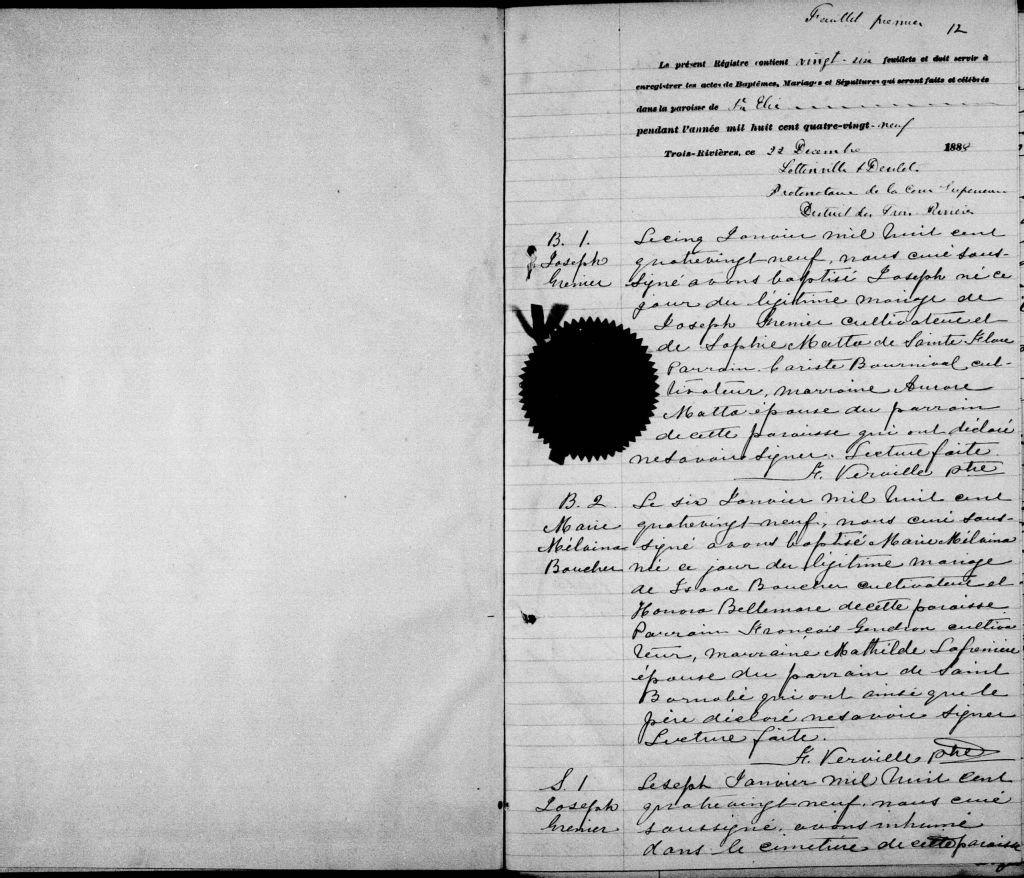 Feuillet premier 12
Le présent Régistre contient vingt-six feuillets et doit servir à
enregistrer les actes de Baptêmes, Mariages et Sépultures qui seront faits et célébrés
dans la paroisse de St Elie
pendant l'année mil huit cent quatre-vingt-neuf
Trois-Rivières, ce 22 Decembre 1888
Lottinville & Desilets
Protonotaire de la Cour Superieure
District des Trois Rivières
B. 1.
Joseph
Grenier
Le cinq Janvier mil huit cent
quatrevingt neuf, nous curé sous-
signé avons baptisé Joseph né ce
jour du légitime mariage de
Joseph Grenier cultivateur et
de Sophie Matta de Sainte Flore
Parrain Cariste Bournival cul-
tivateur, marraine Aurore
Matta épouse du parrain
de cette paroisse qui ont déclaré
ne savoir signer. Lecture faite.
F. Verville ptre
B. 2
Marie
Mélaina
Boucher
Le six Janvier mil huit cent
quatrevingt neuf, nous curé sous-
signé avons baptisé Marie Mélaina
née ce jour du légitime mariage
de Isaac Boucher cultivateur et
Honora Bellemare de cette paroisse
Parrain François Gendron cultiva
teur, marraine Mathilde Lafrenière
épouse du parrain de Saint
Barnabé qui ont ainsi que le
père déclaré ne savoir signer
Lecture faite.
F. Verville ptre
S. 1
Joseph
Grenier
Le sept Janvier mil huit cent
quatrevingt neuf, nous curé
soussigné, avons inhumé
dans le cimetière de cette paroisse